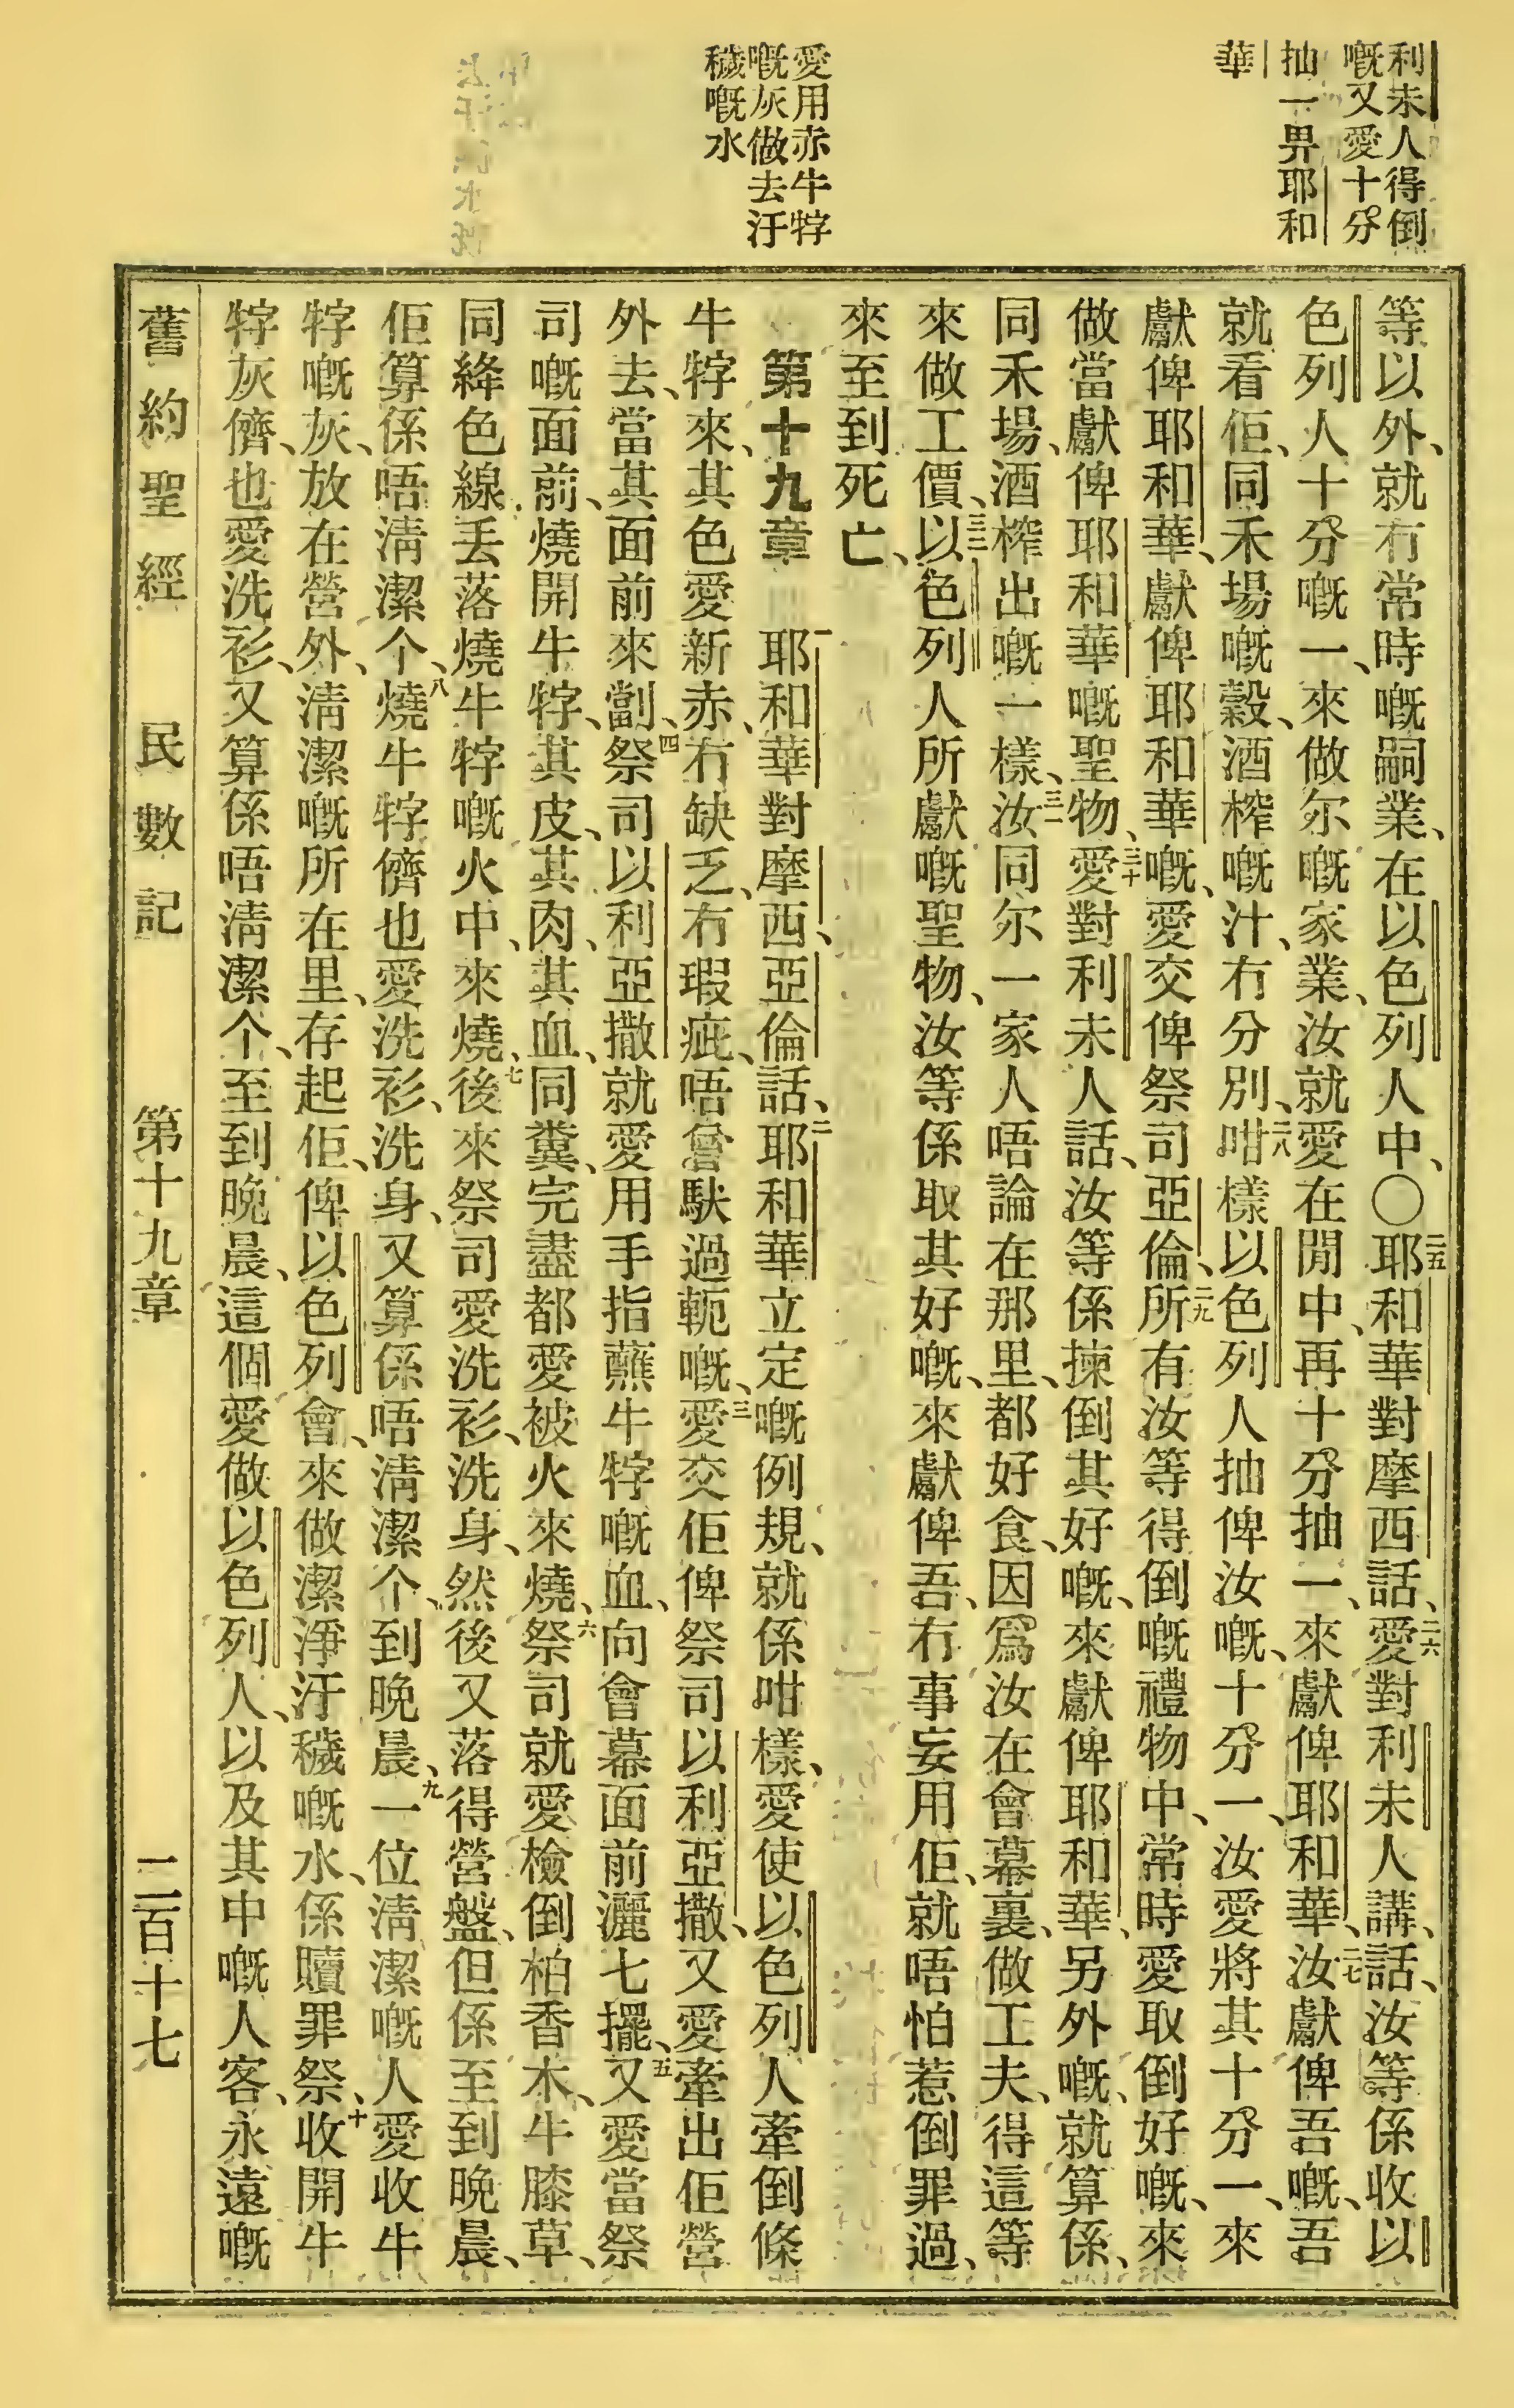 利未人得倒
嘅又愛十分
抽一畀耶和
華
愛用赤牛牸
嘅灰做去汙
穢嘅水
等以外、就冇常時嘅嗣業、在以色列人中、〇二五耶和華對摩西話、二六愛對利未人講、話、汝等係收以
色列人十分嘅一、來做尔嘅家業、汝就愛在閒中、再十分抽一、來獻俾耶和華、二七汝獻俾吾嘅、吾
就看佢、同禾場嘅穀、酒榨嘅汁、冇分別、二八咁樣以色列人抽俾汝嘅、十分一、汝愛將其十分一、來
獻俾耶和華、獻俾耶和華嘅、愛交俾祭司亞倫、二九所有汝等得倒嘅禮物中、常時愛取倒好嘅、來
做當獻俾耶和華嘅聖物、三十愛對利未人話、汝等係揀倒其好嘅、來獻俾耶和華、另外嘅、就算係、
同禾場、酒榨出嘅一樣、三一汝同尔一家人唔論在那里、都好食、因為汝在會幕裏、做工夫、得這等
來做工價、三二以色列人所獻嘅聖物、汝等係取其好嘅、來獻俾吾、冇事妄用佢、就唔怕惹倒罪過、
來至到死亡、
第十九章　一耶和華對摩西、亞倫話、二耶和華立定嘅例規、就係咁樣、愛使以色列人牽倒條
牛牸來、其色愛新赤、冇缺乏、冇瑕疵、唔曾馱過軛嘅、三愛交佢俾祭司以利亞撒、又愛牽出佢營
外去、當其面前來劏、四祭司以利亞撒就愛用手指蘸牛牸嘅血、向會幕面前灑七擺、五又愛當祭
司嘅面前、燒開牛牸、其皮、其肉、其血、同糞、完盡都愛被火來燒、六祭司就愛檢倒柏香木、牛膝草、
同絳色線、丟落燒牛牸嘅火中、來燒、七後來祭司愛洗衫、洗身、然後又落得營盤、但係至到晚晨、
佢算係唔淸潔个、八燒牛牸儕也愛洗衫、洗身、又算係唔淸潔个、到晚晨、九一位淸潔嘅人愛收牛
牸嘅灰、放在營外、淸潔嘅所在里、存起佢、俾以色列會、來做潔淨汙穢嘅水、係贖罪祭、十收開牛
牸灰儕、也愛洗衫、又算係唔淸潔个、至到晚晨、這個愛做以色列人、以及其中嘅人客、永遠嘅
舊約聖經　民數記　第十九章　二百十七